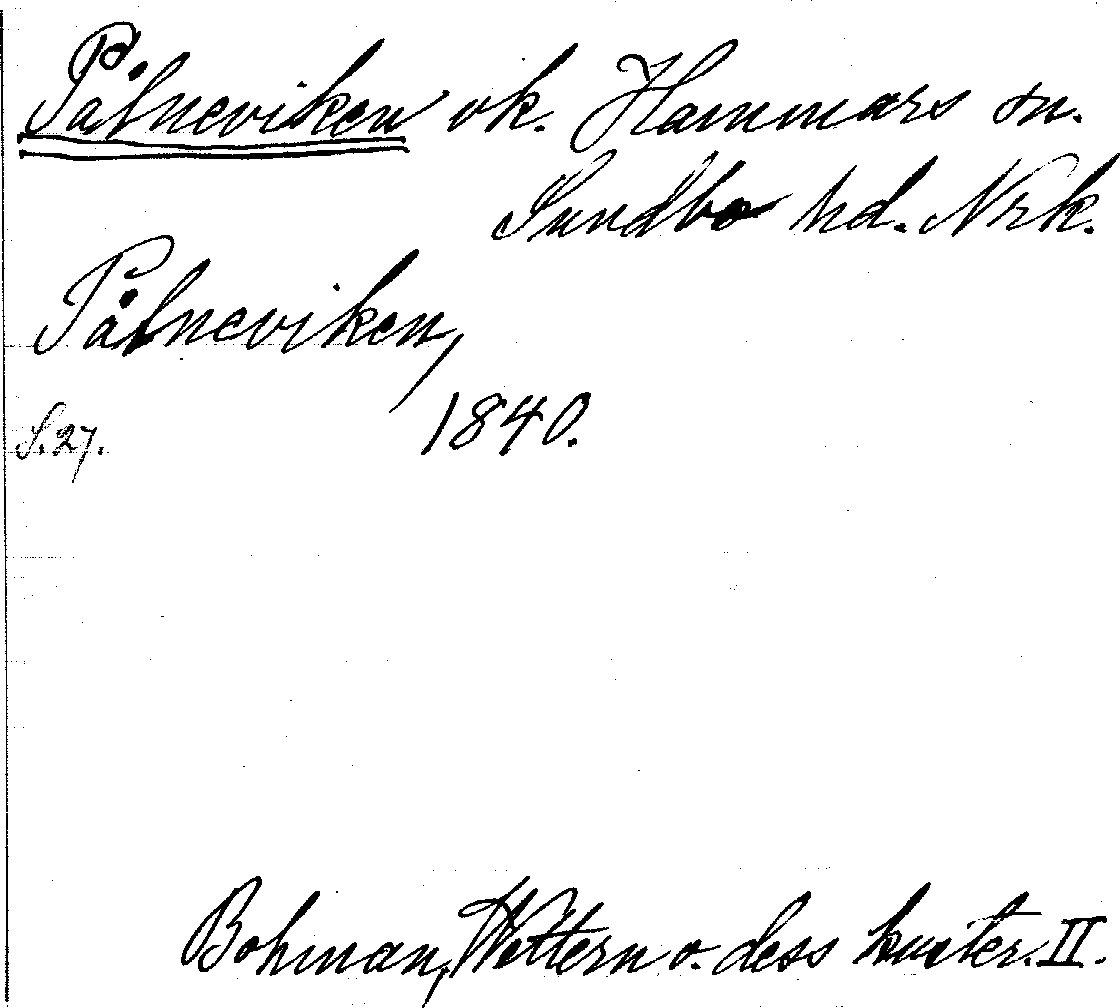 Pålneviken vk. Hammars sn.
Sundbo hd. Nrk.
Pålneviken,
1840.
S. 27.
Bohman, Wettern o. dess kuster. II.